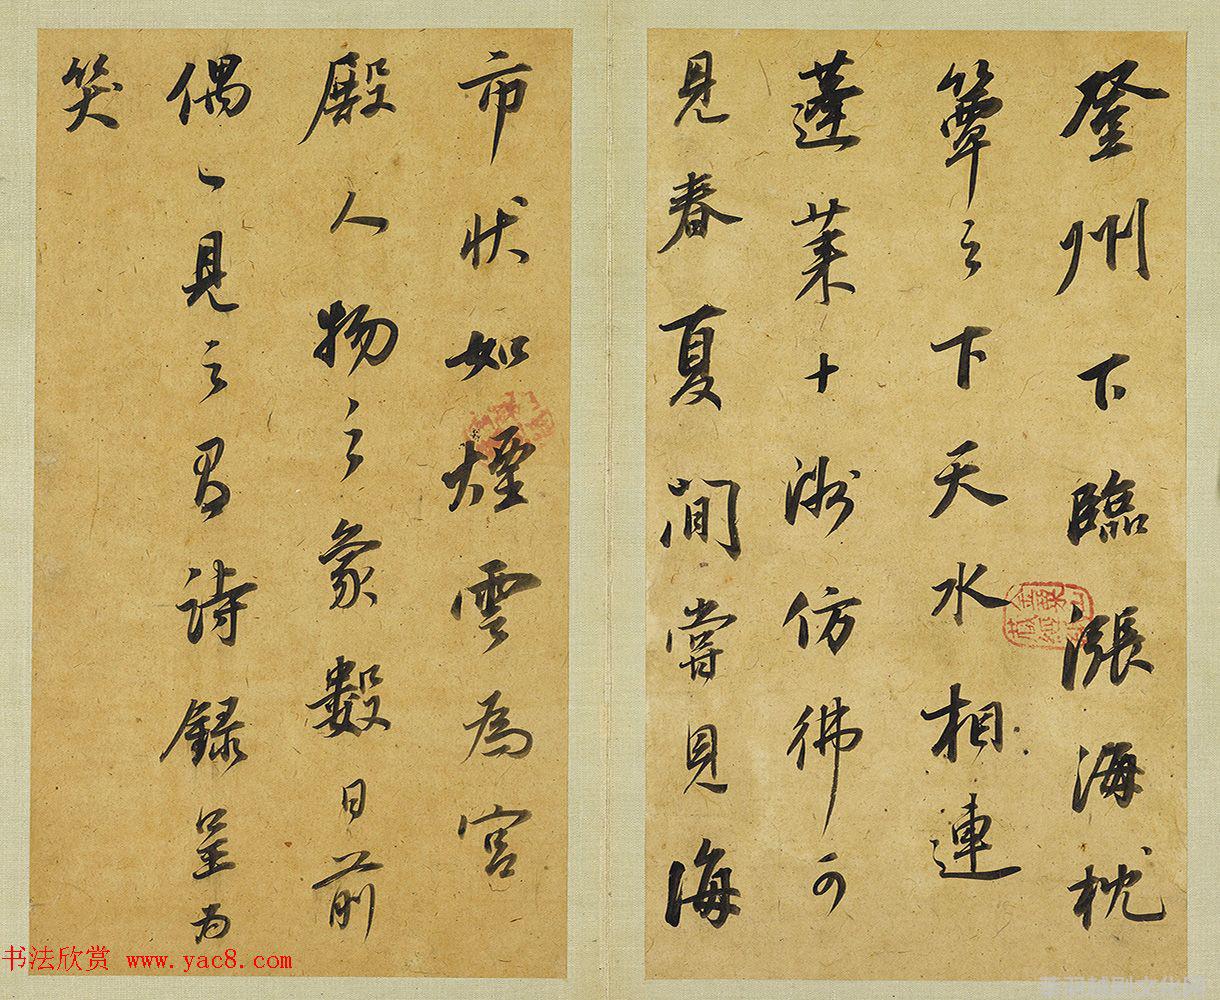 登州下臨漲海枕
簟之下天水相連
蓬莱十洲仿彿可
見春夏間嘗見海
市狀如煙雲為宮
殿人物之象數日前
偶一見之有詩錄呈為
笑
書法欣赏 www.yac8.com